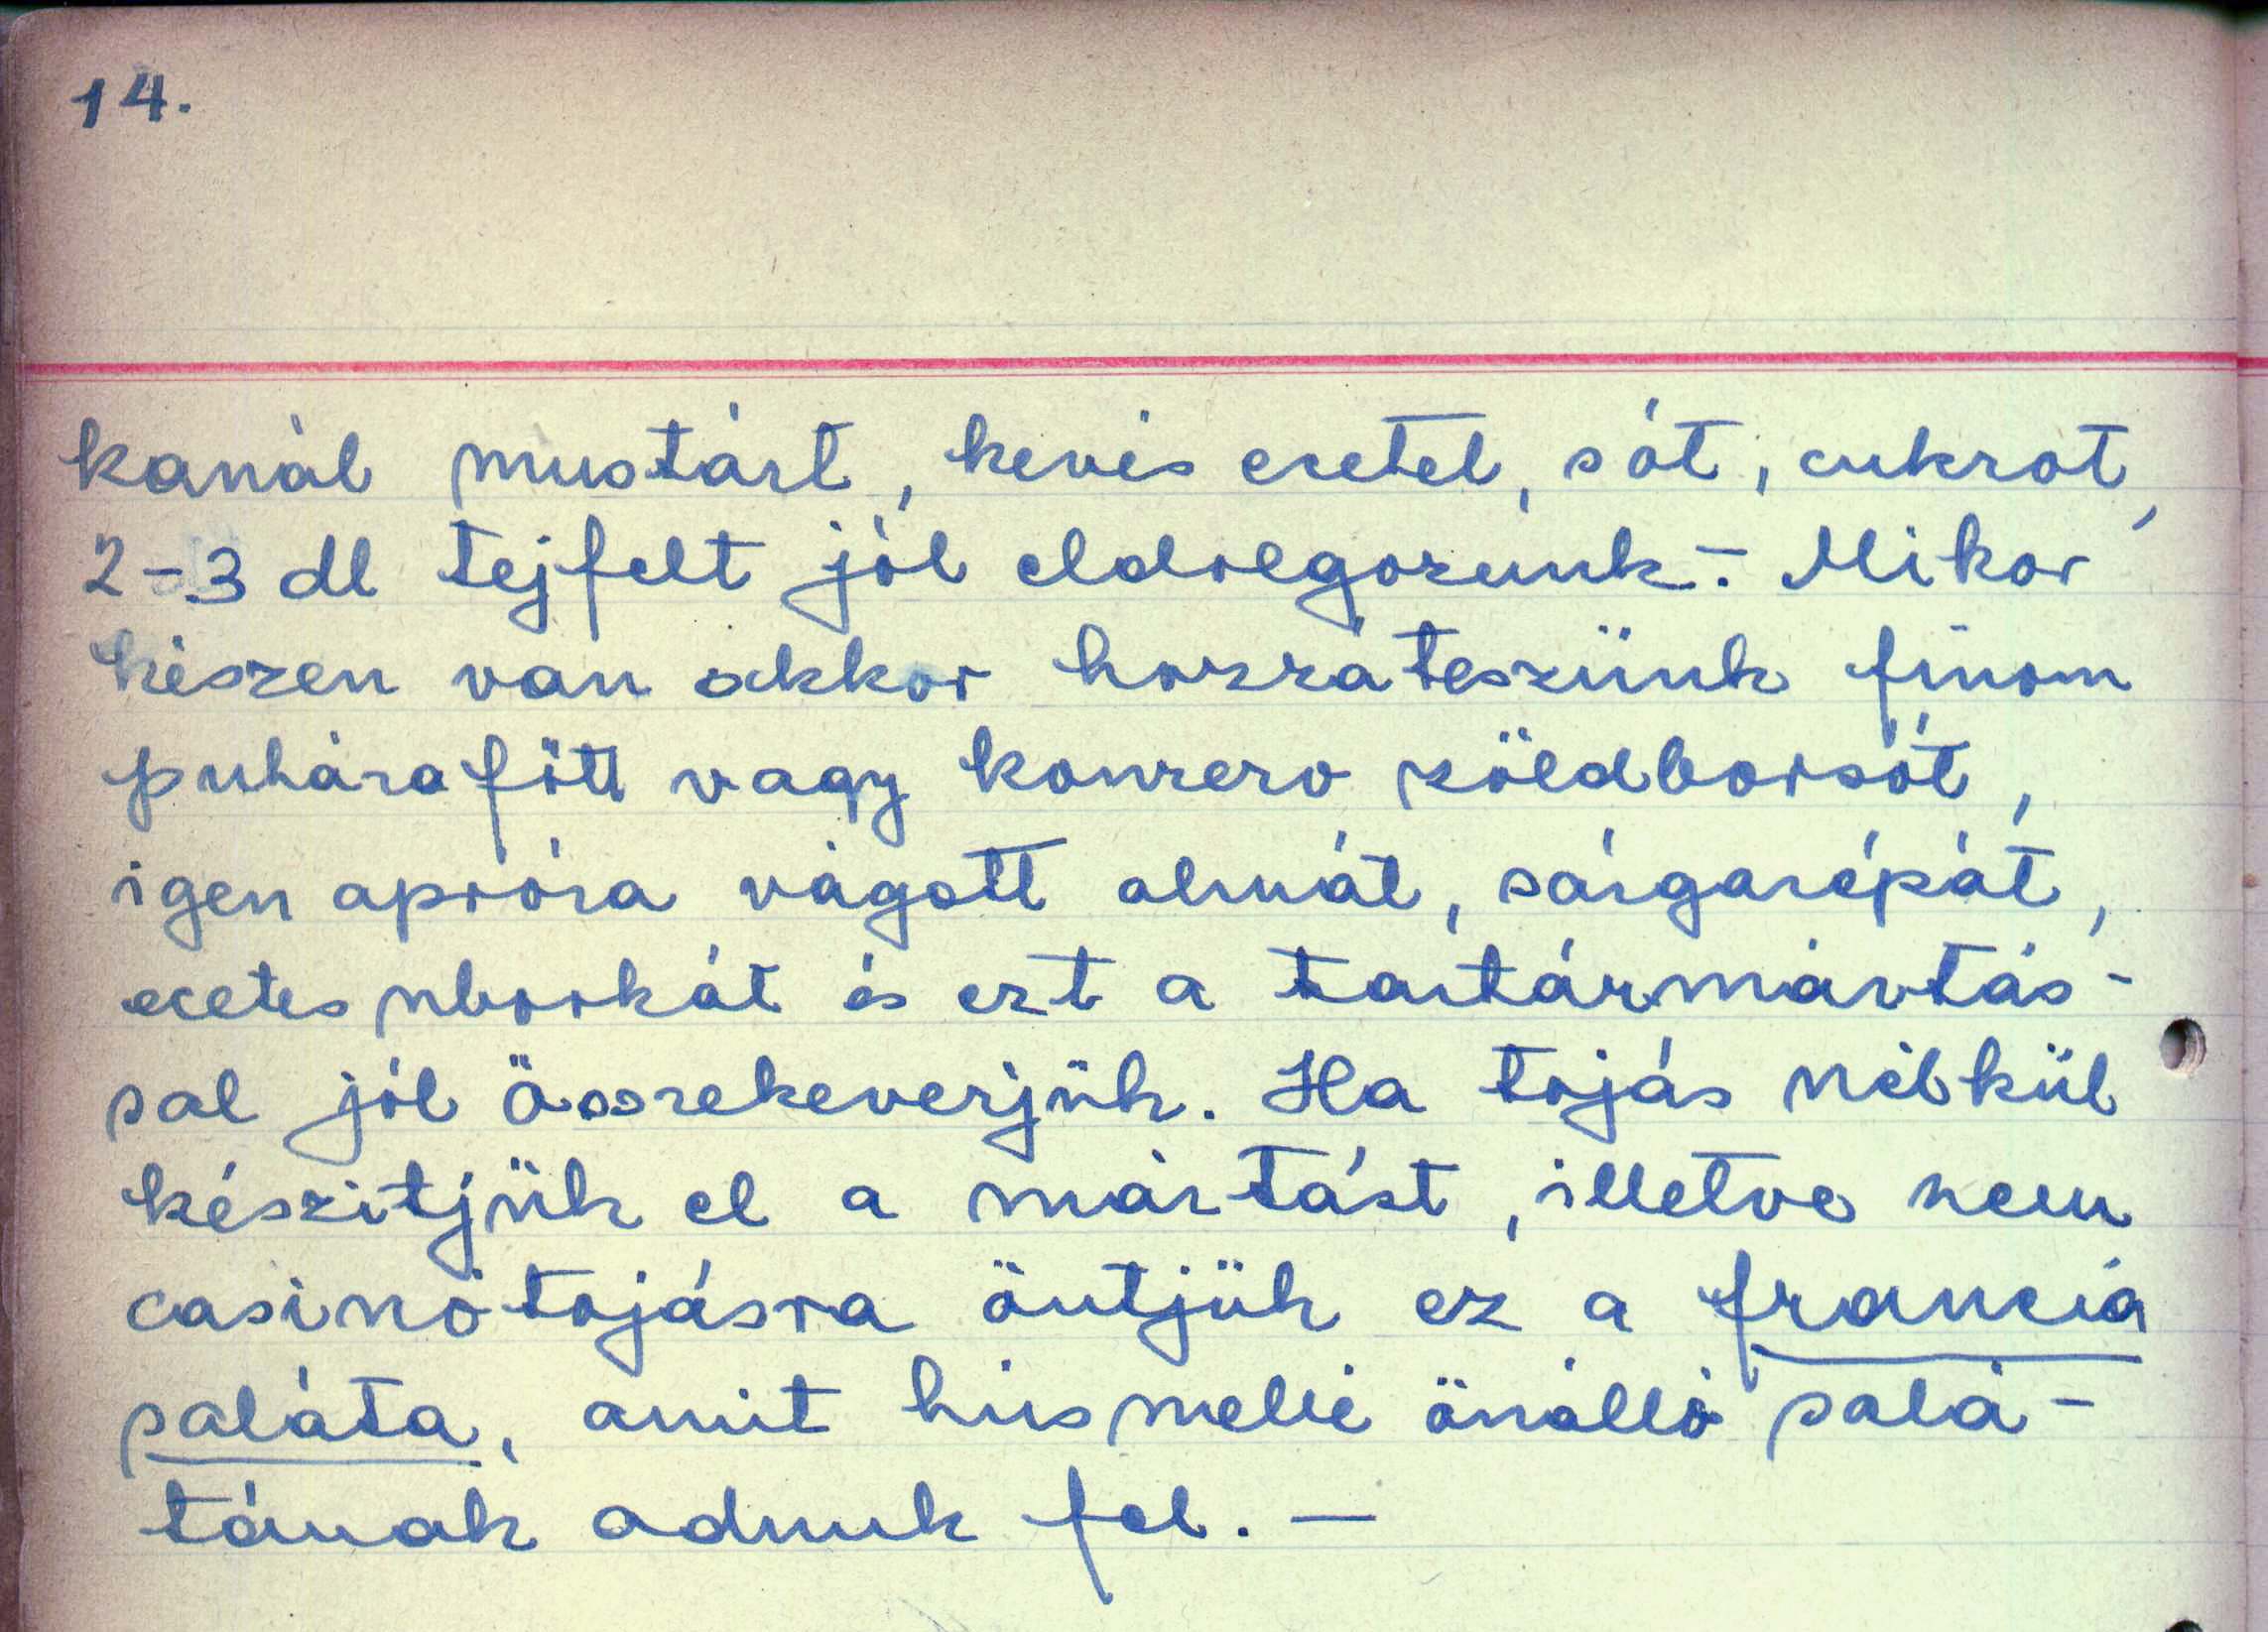 14.
kanál mustárt, kevés ecetel, sót, cukrot,
2-3 dl tejfelt jól eldolgozunk.- Mikor
készen van akkor hozzáteszünk finom
puhára főtt vagy konzerv zöldborsót,
igen apróra vágott almát, sárgarépát,
ecetes uborkát és ezt a tartármártás-
sal jól összekeverjük. Ha tojás nélkül
készitjük el a mártást, illetve nem
casinótojásra öntjük ez a francia
saláta, amit hús mellé önálló salá-
tának adunk fel. —